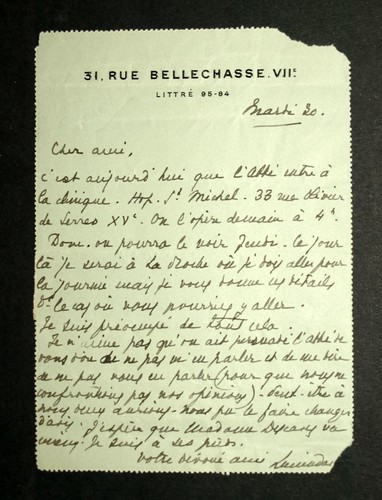 31, RUE BELLECHASSE. VIIE
LITTRÉ 95-84
Mardi 20.
Cher ami,
c'est aujourd'hui que l'Abbé entre à
la clinique. Hop. St Michel. 33 rue Olivier
de Serres XVe. On l'opère demain à 4h.
Dom. on pourra le voir Jeudi. le jour
là je serai à La Roche où je dois aller pour
la journée mais je vous donne ces détails
le cas où vous pourriez y aller.
Je suis préoccupé de tout cela
Je n'aime pas qu'on ait persuadé l'abbé de
de ne pas m'en parler et de me dire
de ne pas vous en parler (pour que nous ne
confrontions pas nos opinions) - Peut-être à
nous deux aurions-nous pu le faire changer
d'avis. J'espère que Madame va
mieux. Je suis à ses pieds.
Votre dévoué ami